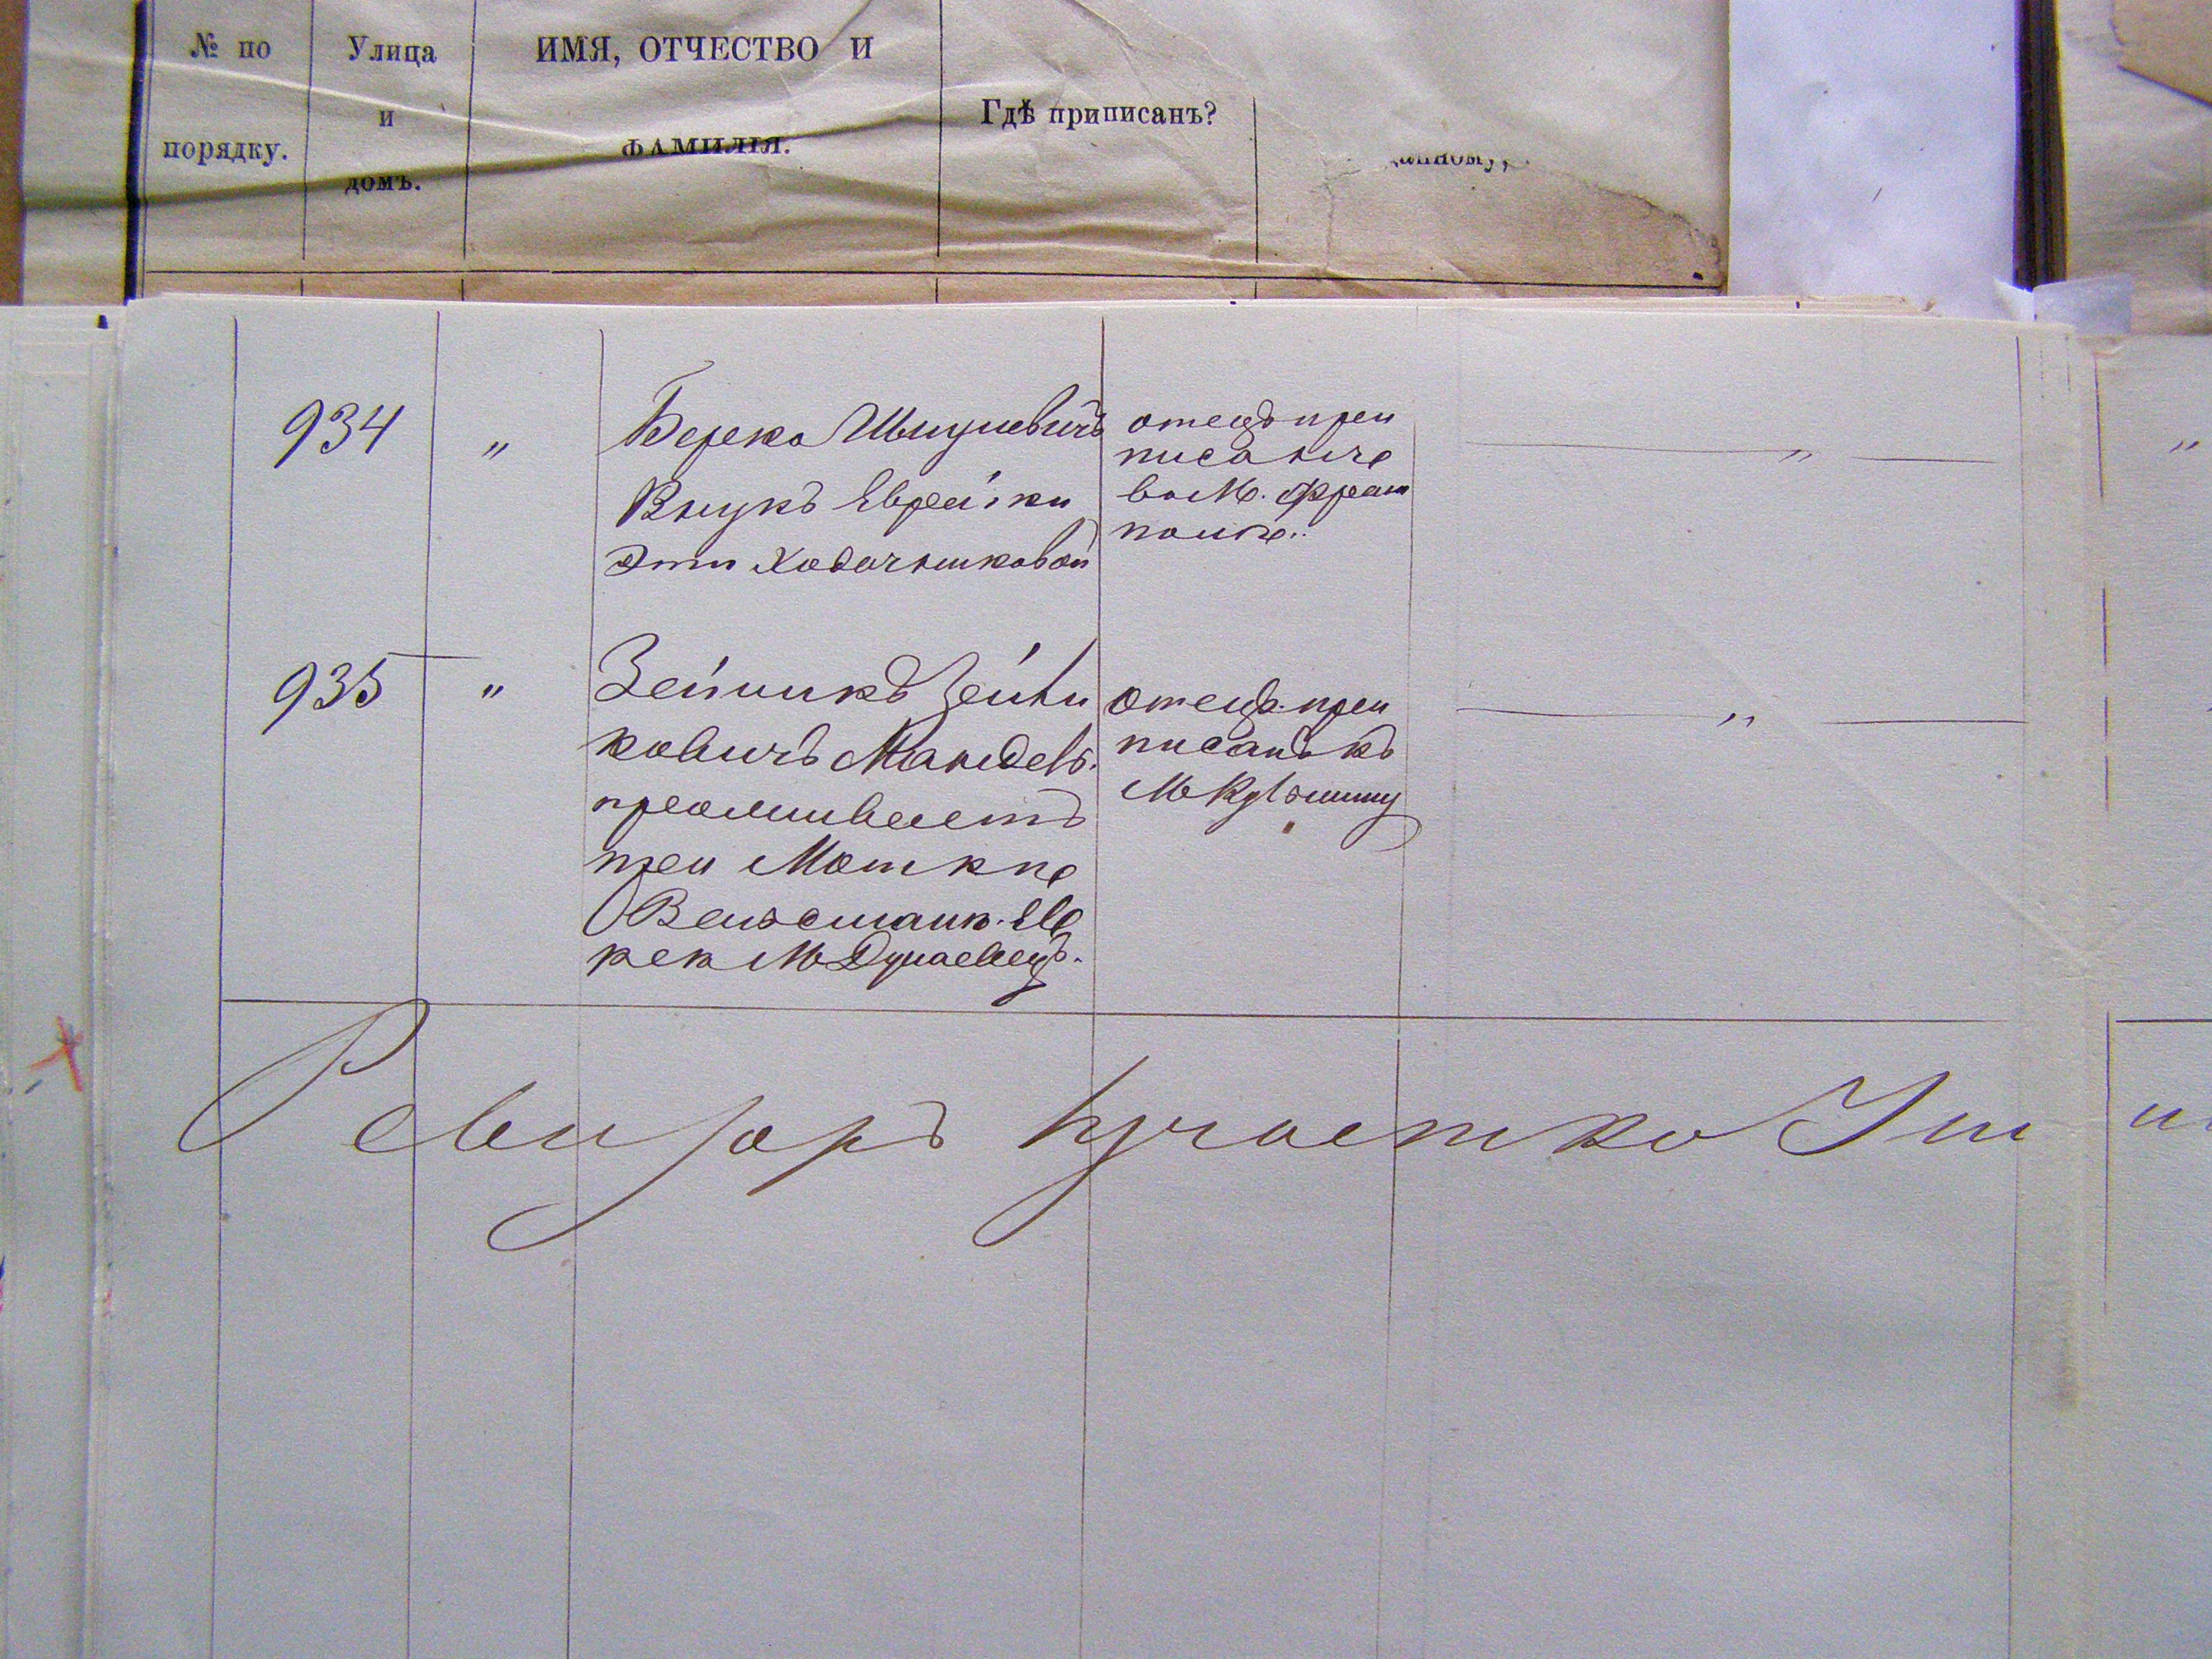 № по порядку.
Улица и домъ.
ИМЯ, ОТЧЕСТВО И ФАМИЛІЯ.
Гдѣ приписанъ?
934
"
Берко Шмулевичъ
Внукъ Еврейки
Эти Ходорчиковой
отецъ при
писанъ
во М. Фрам
поль
"
935
"
Зейликъ Зейли
ковичъ Мандель
проживаетъ
при Мошке
Вейсманъ
М Дунаевецъ.
отецъ при
писанъ къ
М Кульчину
"
"
Ревизоръ участка